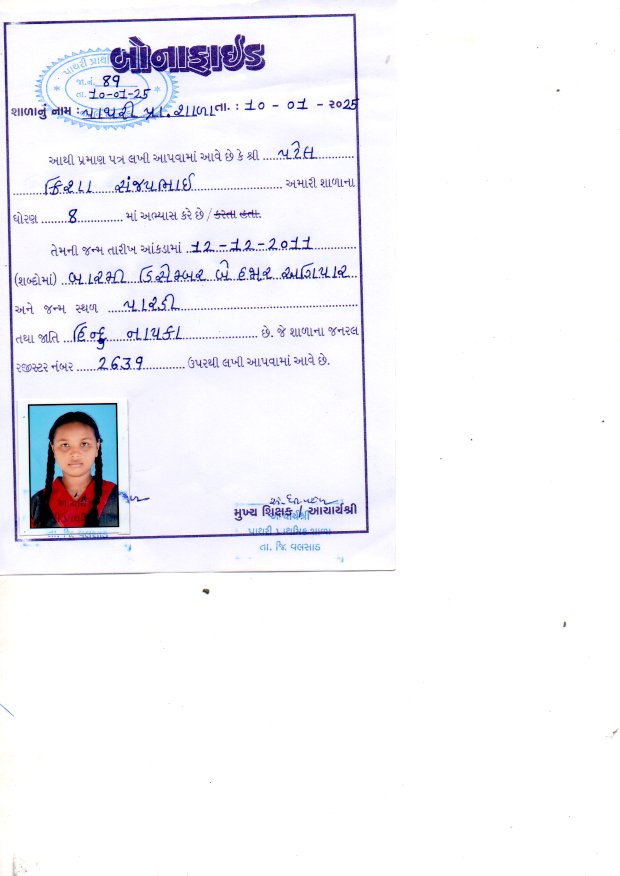 બોનાફાઈડ
પાથરી પ્રાથ
જા.નં. 89
તા. 10-01-25
શાળાનું નામ : પાથરી પ્રા. શાળા તા. : 10 - 01 - ૨૦25
આથી પ્રમાણ પત્ર લખી આપવામાં આવે છે કે શ્રી પટેલ
સંજયભાઈ અમારી શાળાના
ધોરણ 8 માં અભ્યાસ કરે છે / કરતા હતા.
તેમની જન્મ તારીખ આંકડામાં 12-12-2011
(શબ્દોમાં) બારમી ડિસેમ્બર બે હજાર અગિયાર
અને જન્મ સ્થળ પારડી
તથા જાતિ હિન્દુ નાયકા છે. જે શાળાના જનરલ
રજીસ્ટર નંબર 2639 ઉપરથી લખી આપવામાં આવે છે.
મુખ્ય શિક્ષક / આચાર્યશ્રી
આચાર્યશ્રી
પાથરી પ્રાથમિક શાળા
તા. જિ. વલસાડ
તા. જિ. વલસાડ